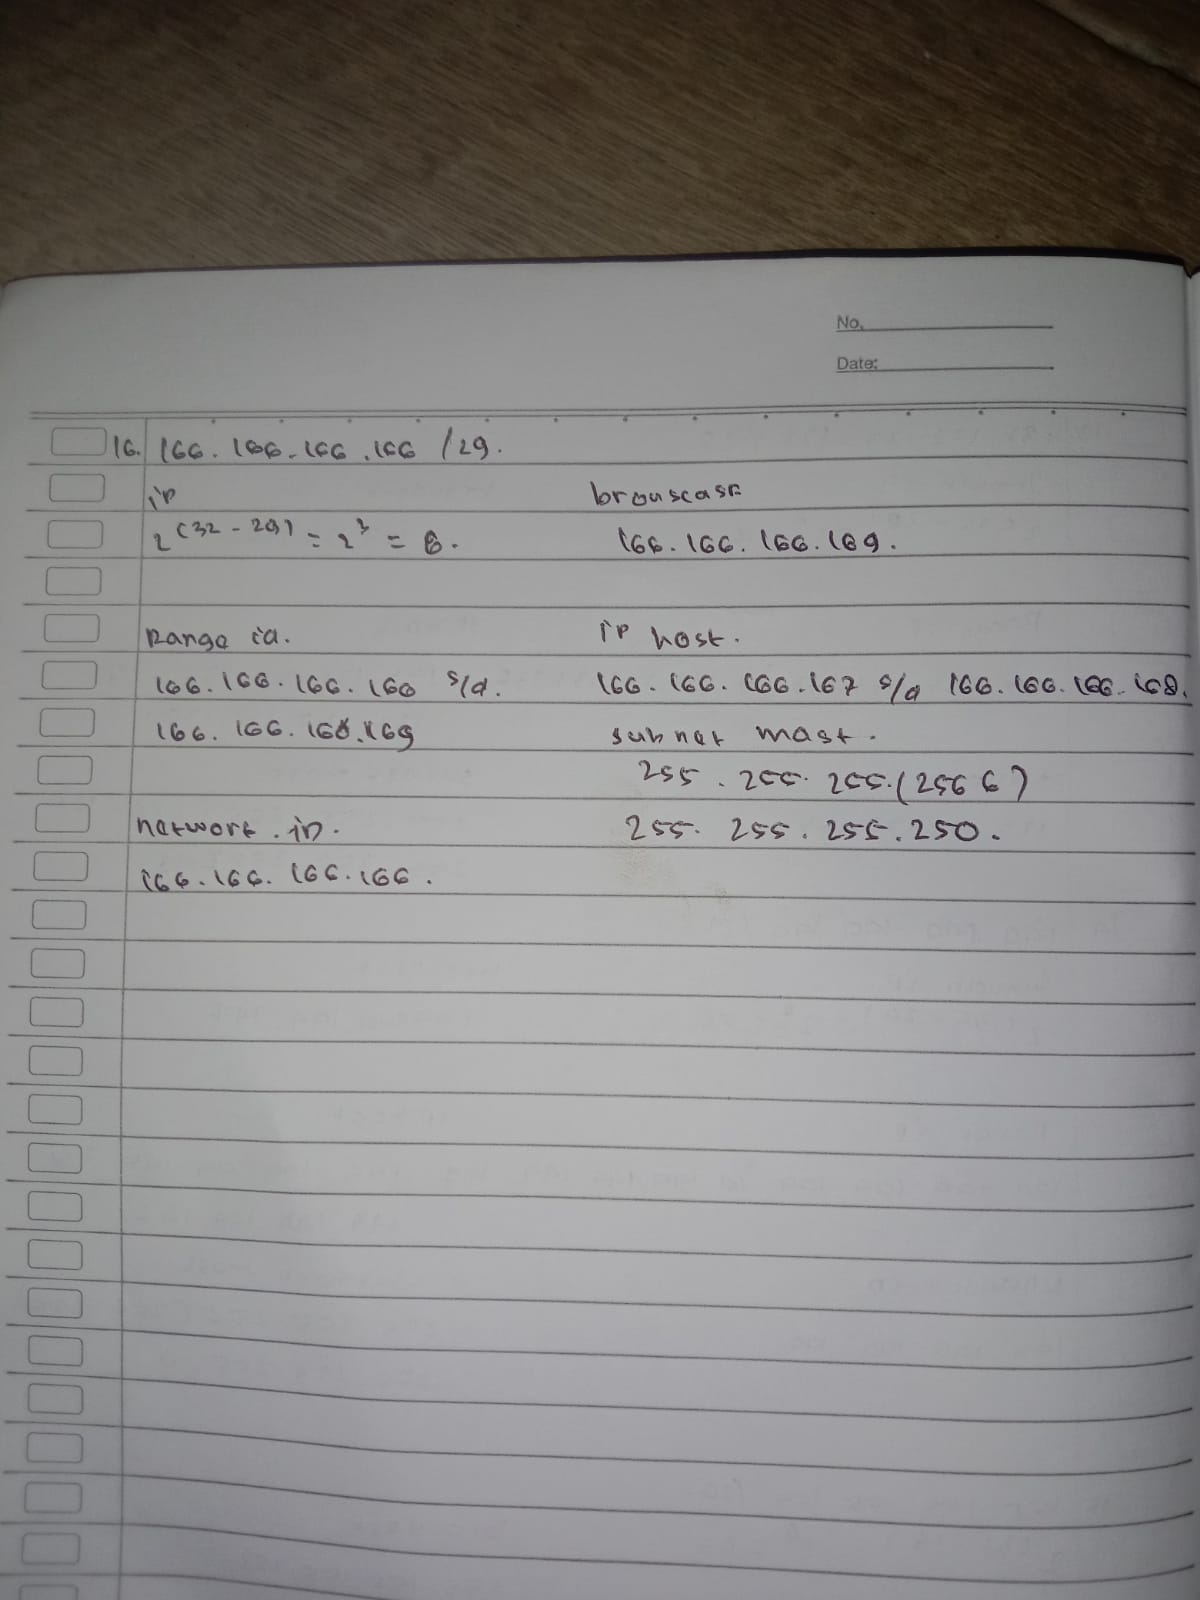 No.
Date:
16. 166. 166. 166. 166 /29.
ip
2(32-29) = 2³ = 8.
Range id.
166. 166. 166. 160 s/d.
166. 166. 166. 169
network. id.
166. 166. 166. 166.
brouscast
166. 166. 166. 169.
ip host.
166. 166. 166. 167 s/d 166. 166. 166. 168.
subnet mast.
255. 255. 255. (256 6)
255. 255. 255. 250.